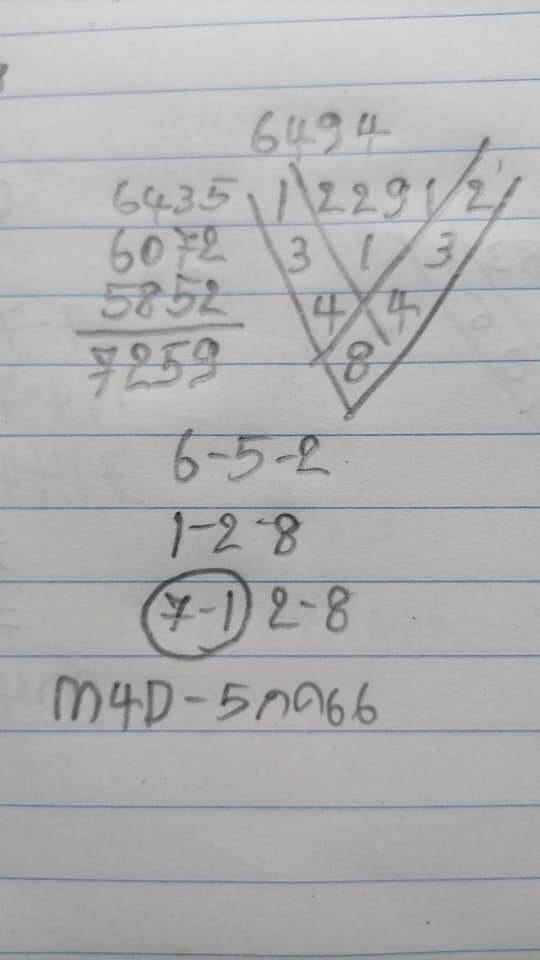 6494
6435 1 2 2 9 1 2
6072 3 1 3
5852 4 4
7259 8
6-5-2
1-2-8
7-1 2-8